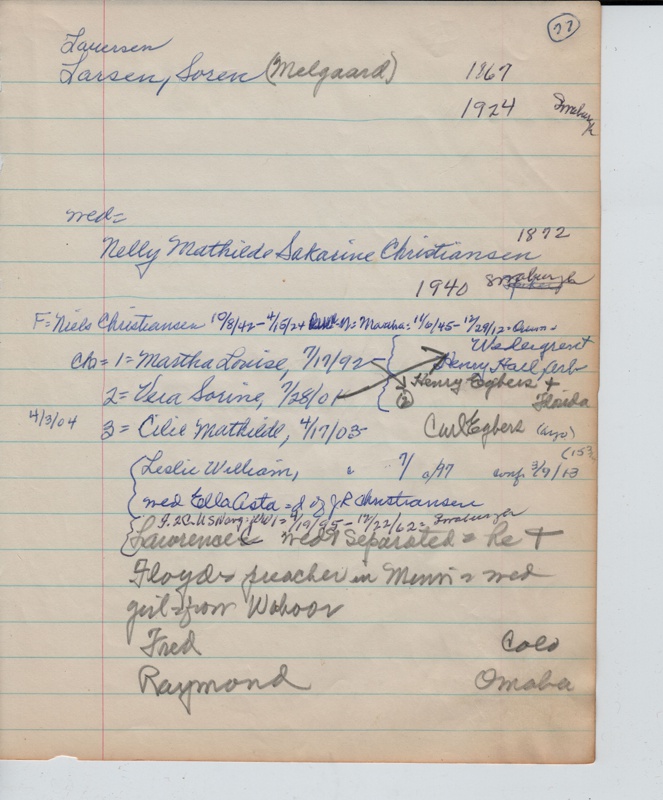 77
Lauersen
Larsen, Soren (Melgaard) 1867
1924
wed=
1872
Nelly Mathilde Sakarine Christiansen
1940
F= Niels Christiansen 10/8/42 - 4/15/24 M= Martha= 11/6/45 - 12/29/12=
Ch= 1= Martha Louise, 7/17/92
Henry Hall, Arb
2= Vera Sorine, 7/28/01 (2) Henry Egbers +
Florida
4/3/04 3= Cilie Mathilde, 4/17/03 Carl Egbers
Leslie William, 7/ 0/97 conf 3/9/13
wed Ella Asta = d of J.R. Christiansen
Lawrence wed + Separated = he +
Floyd= preacher in Menn = wed
girl=from Wahoo
Fred Colo
Raymond Omaha